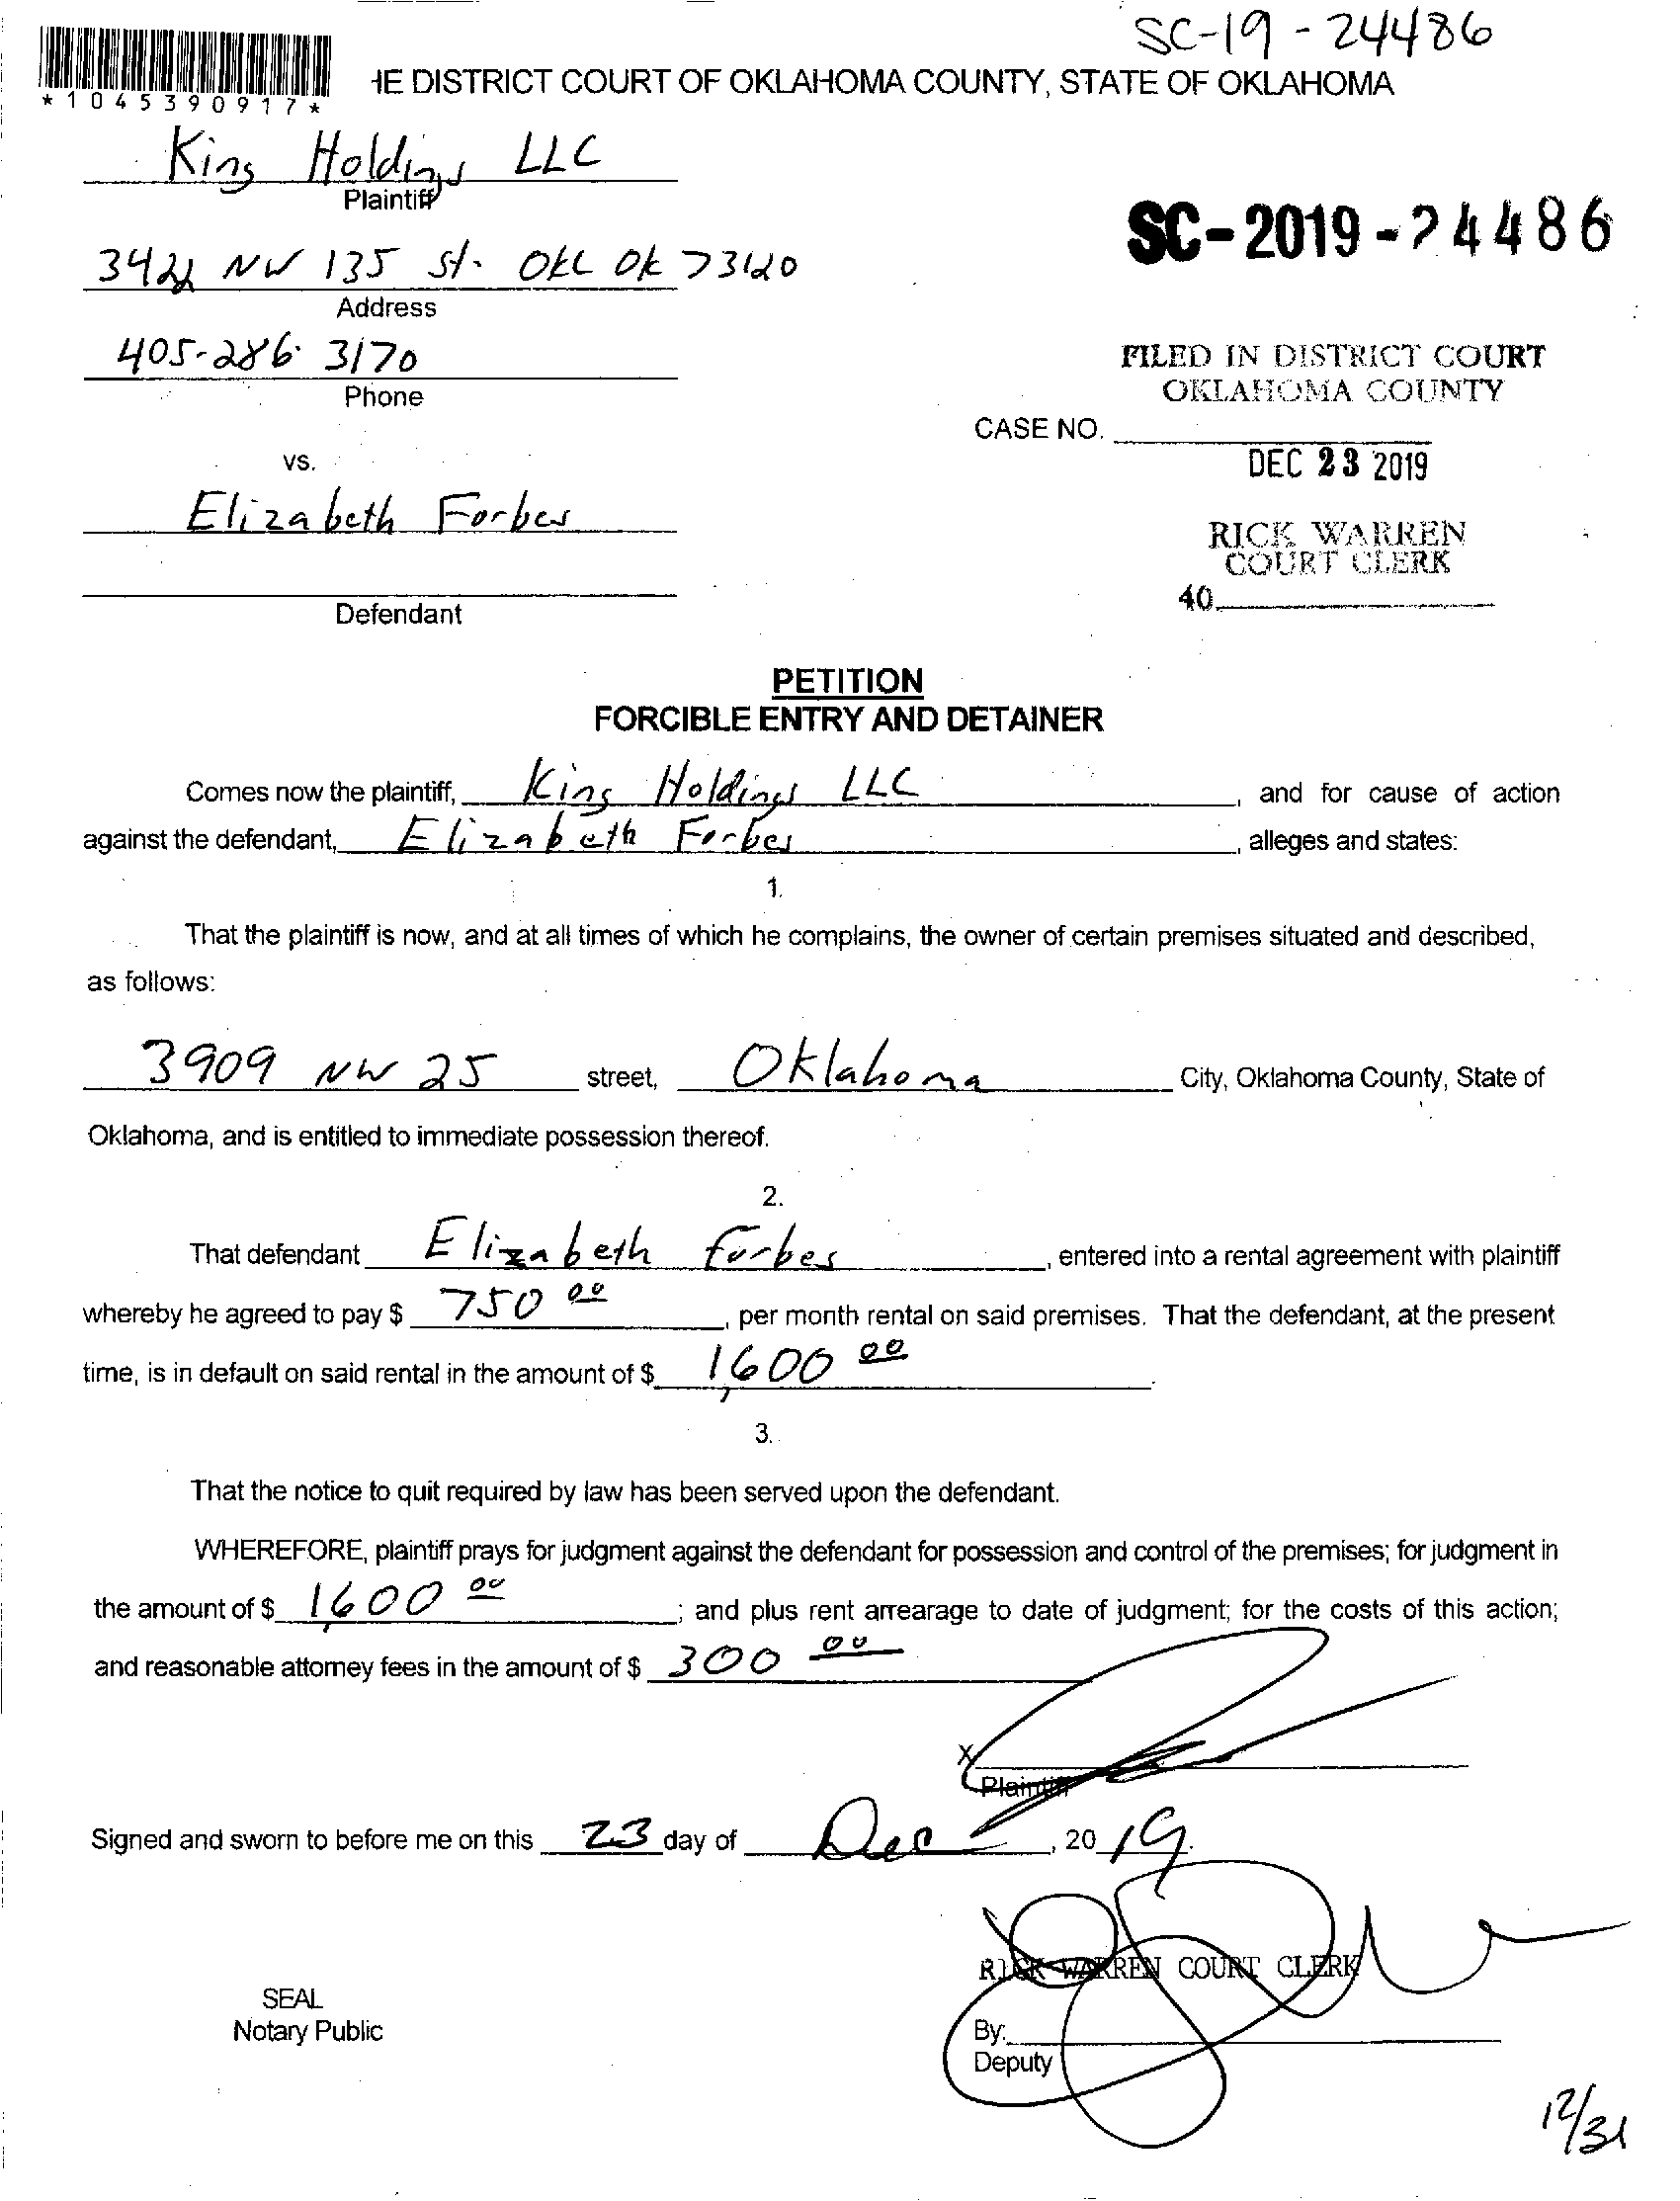 SC-19-24486
*1045390917*
HE DISTRICT COURT OF OKLAHOMA COUNTY, STATE OF OKLAHOMA
King Holdings LLC
Plaintiff
SC-2019-24486
NW 135 St. OKC OK 73120
Address
405-286-3170
Phone
FILED IN DISTRICT COURT
OKLAHOMA COUNTY
CASE NO.
DEC 23 2019
vs.
Elizabeth Forbes
RICK WARREN
COURT CLERK
40
Defendant
PETITION
FORCIBLE ENTRY AND DETAINER
Comes now the plaintiff, King Holdings LLC, and for cause of action
against the defendant, Elizabeth Forbes, alleges and states:
1.
That the plaintiff is now, and at all times of which he complains, the owner of certain premises situated and described,
as follows:
3909 NW 25 street, Oklahoma City, Oklahoma County, State of
Oklahoma, and is entitled to immediate possession thereof.
2.
That defendant Elizabeth Forbes, entered into a rental agreement with plaintiff
whereby he agreed to pay $ 750 00, per month rental on said premises. That the defendant, at the present
time, is in default on said rental in the amount of $ 1,600 00.
3.
That the notice to quit required by law has been served upon the defendant.
WHEREFORE, plaintiff prays for judgment against the defendant for possession and control of the premises; for judgment in
the amount of $ 1,600 00; and plus rent arrearage to date of judgment; for the costs of this action;
and reasonable attorney fees in the amount of $ 300 00
X
Plaintiff
Signed and sworn to before me on this 23 day of Dec, 2019.
RICK WARREN COURT CLERK
SEAL
Notary Public
By:
Deputy
12/31